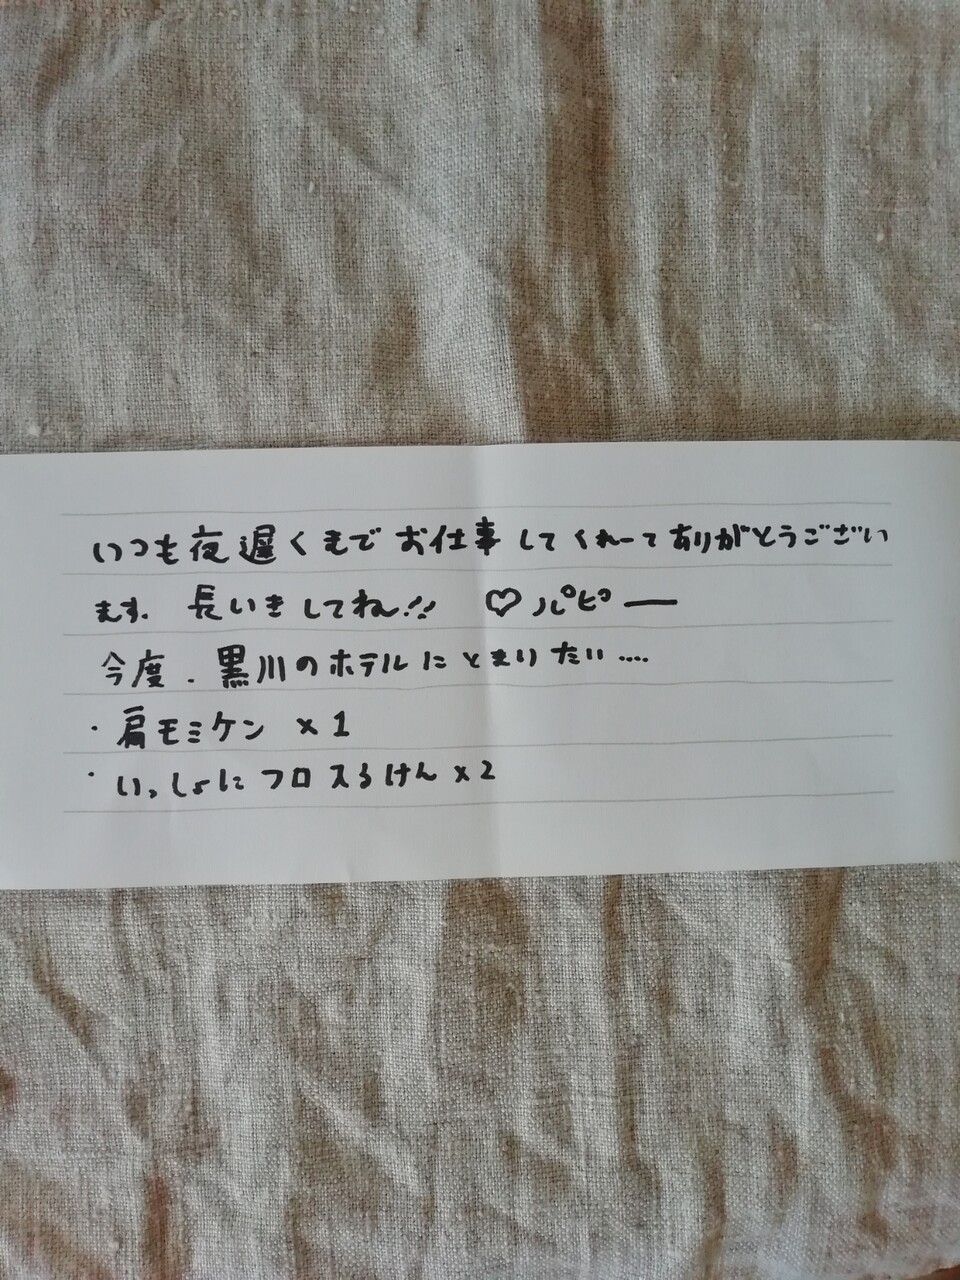 いつも夜遅くまでお仕事してくれーてありがとうござい
ます. 長いきしてね!! ♡ルピピー
今度. 黒川のホテルにとまりたい....
・肩モミケン ×1
・いっしょにフロスるけん×2